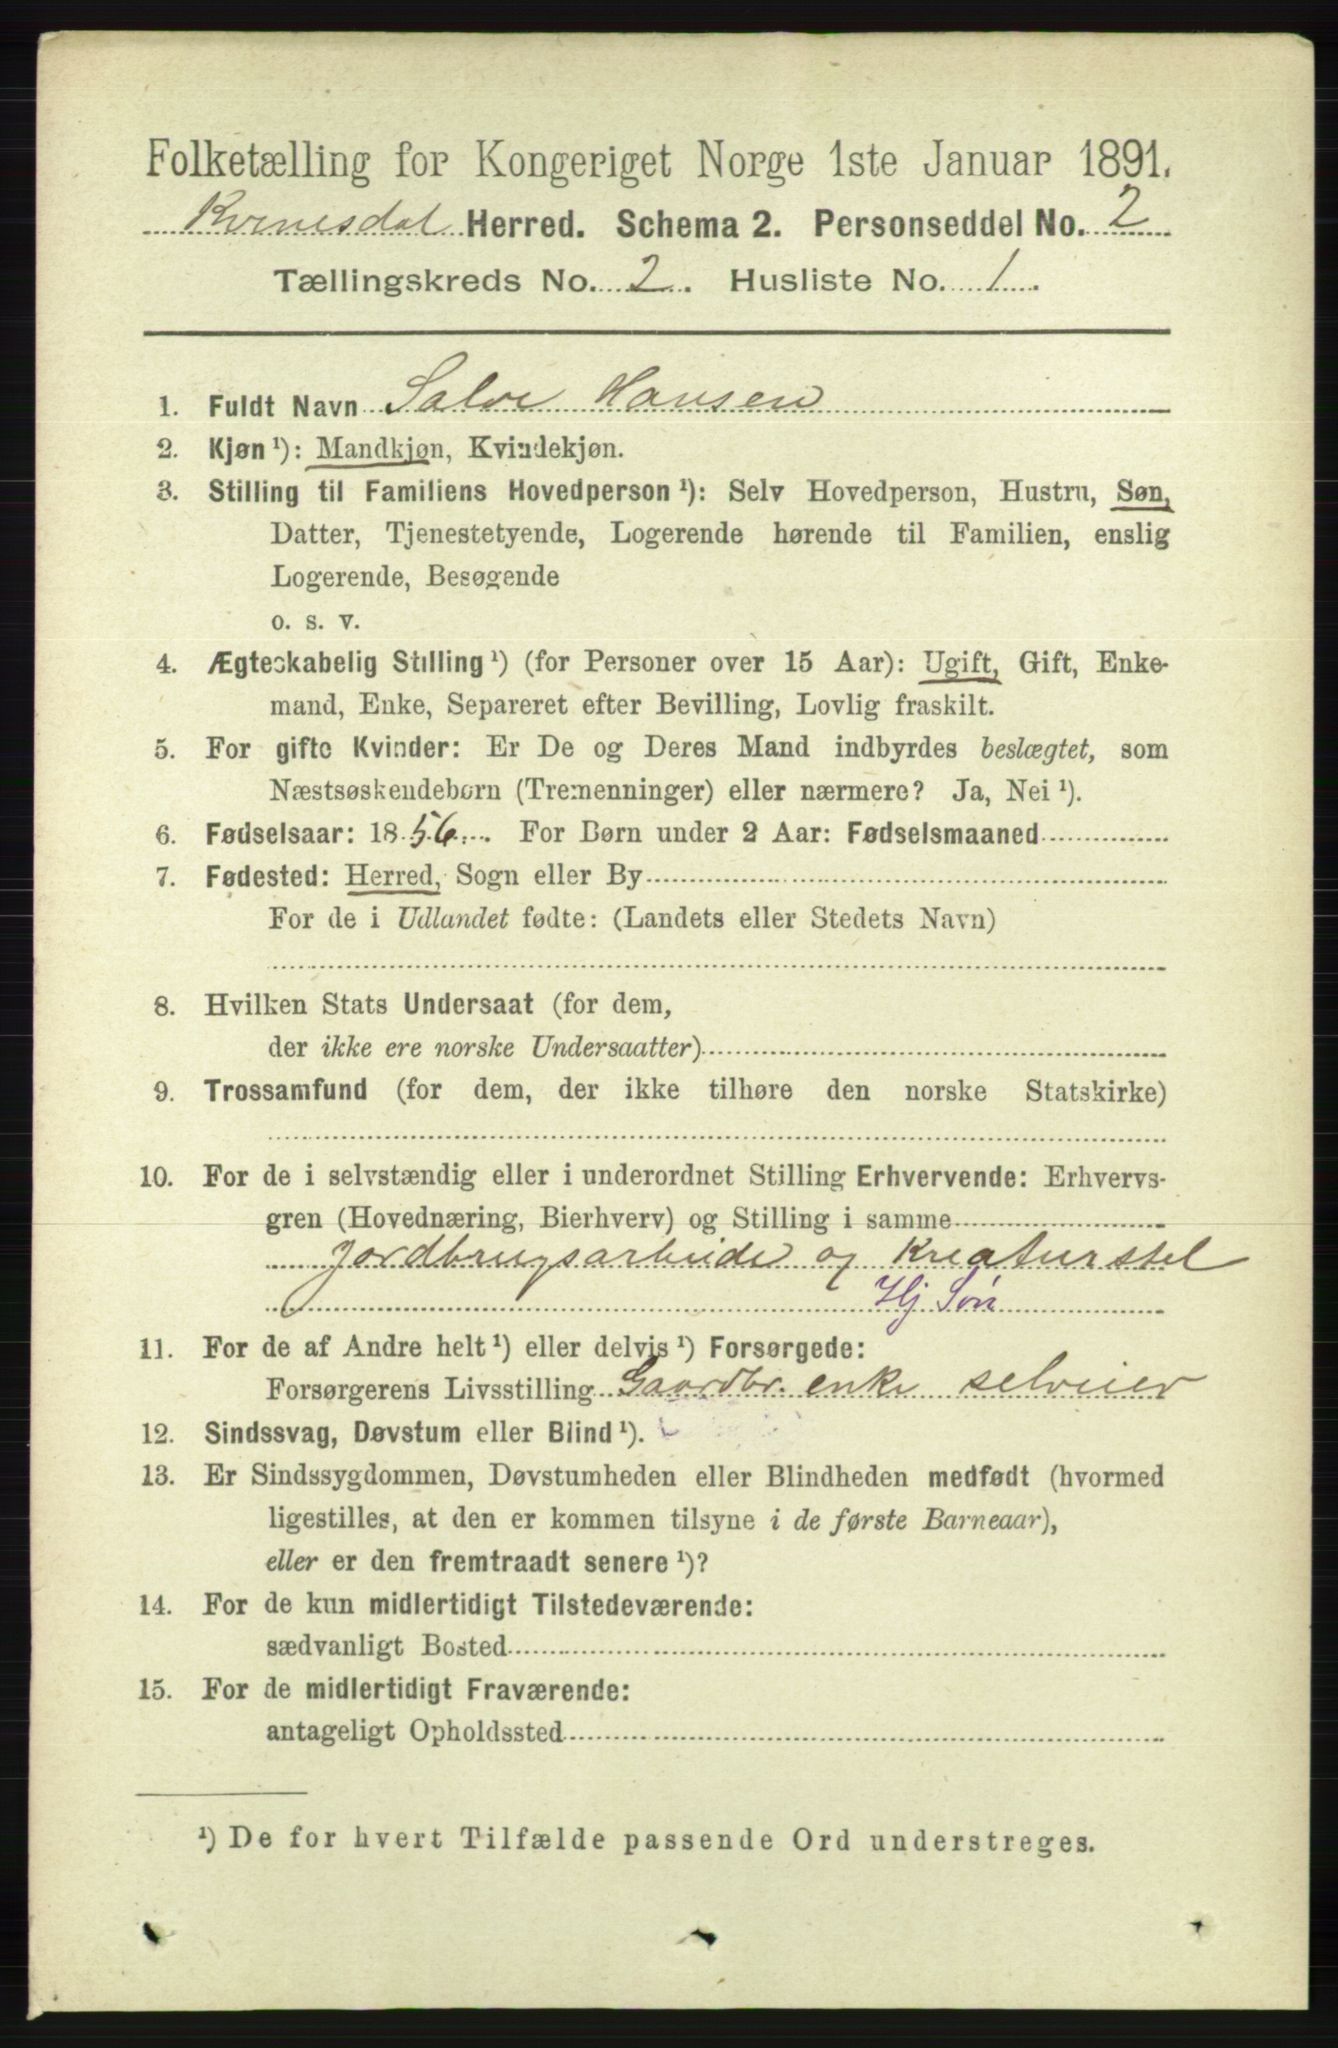 Folketælling for Kongeriget Norge 1ste Januar 1891.
Kvinesdal Herred. Schema 2. Personseddel No. 2
Tællingskreds No. 2. Husliste No. 1.
1. Fuldt Navn Salve Hansen
2. Kjøn ¹): Mandkjøn, Kvindekjøn.
3. Stilling til Familiens Hovedperson ¹): Selv Hovedperson, Hustru, Søn,
Datter, Tjenestetyende, Logerende hørende til Familien, enslig
Logerende, Besøgende
o. s. v.
4. Ægteskabelig Stilling ¹) (for Personer over 15 Aar): Ugift, Gift, Enke-
mand, Enke, Separeret efter Bevilling, Lovlig fraskilt.
5. For gifte Kvinder: Er De og Deres Mand indbyrdes beslægtet, som
Næstsøskendebørn (Tremenninger) eller nærmere? Ja, Nei ¹).
6. Fødselsaar: 1856. For Børn under 2 Aar: Fødselsmaaned
7. Fødested: Herred, Sogn eller By
For de i Udlandet fødte: (Landets eller Stedets Navn)
8. Hvilken Stats Undersaat (for dem,
der ikke ere norske Undersaatter)
9. Trossamfund (for dem, der ikke tilhøre den norske Statskirke)
10. For de i selvstændig eller i underordnet Stilling Erhvervende: Erhvervs-
gren (Hovednæring, Bierhverv) og Stilling i samme
Jordbrugsarbeide og Kreaturstel
Hj Søn
11. For de af Andre helt ¹) eller delvis ¹) Forsørgede:
Forsørgerens Livsstilling Gaardbr. enke selveier
12. Sindssvag, Døvstum eller Blind ¹).
13. Er Sindssygdommen, Døvstumheden eller Blindheden medfødt (hvormed
ligestilles, at den er kommen tilsyne i de første Barneaar),
eller er den fremtraadt senere ¹)?
14. For de kun midlertidigt Tilstedeværende:
sædvanligt Bosted
15. For de midlertidigt Fraværende:
antageligt Opholdssted
¹) De for hvert Tilfælde passende Ord understreges.